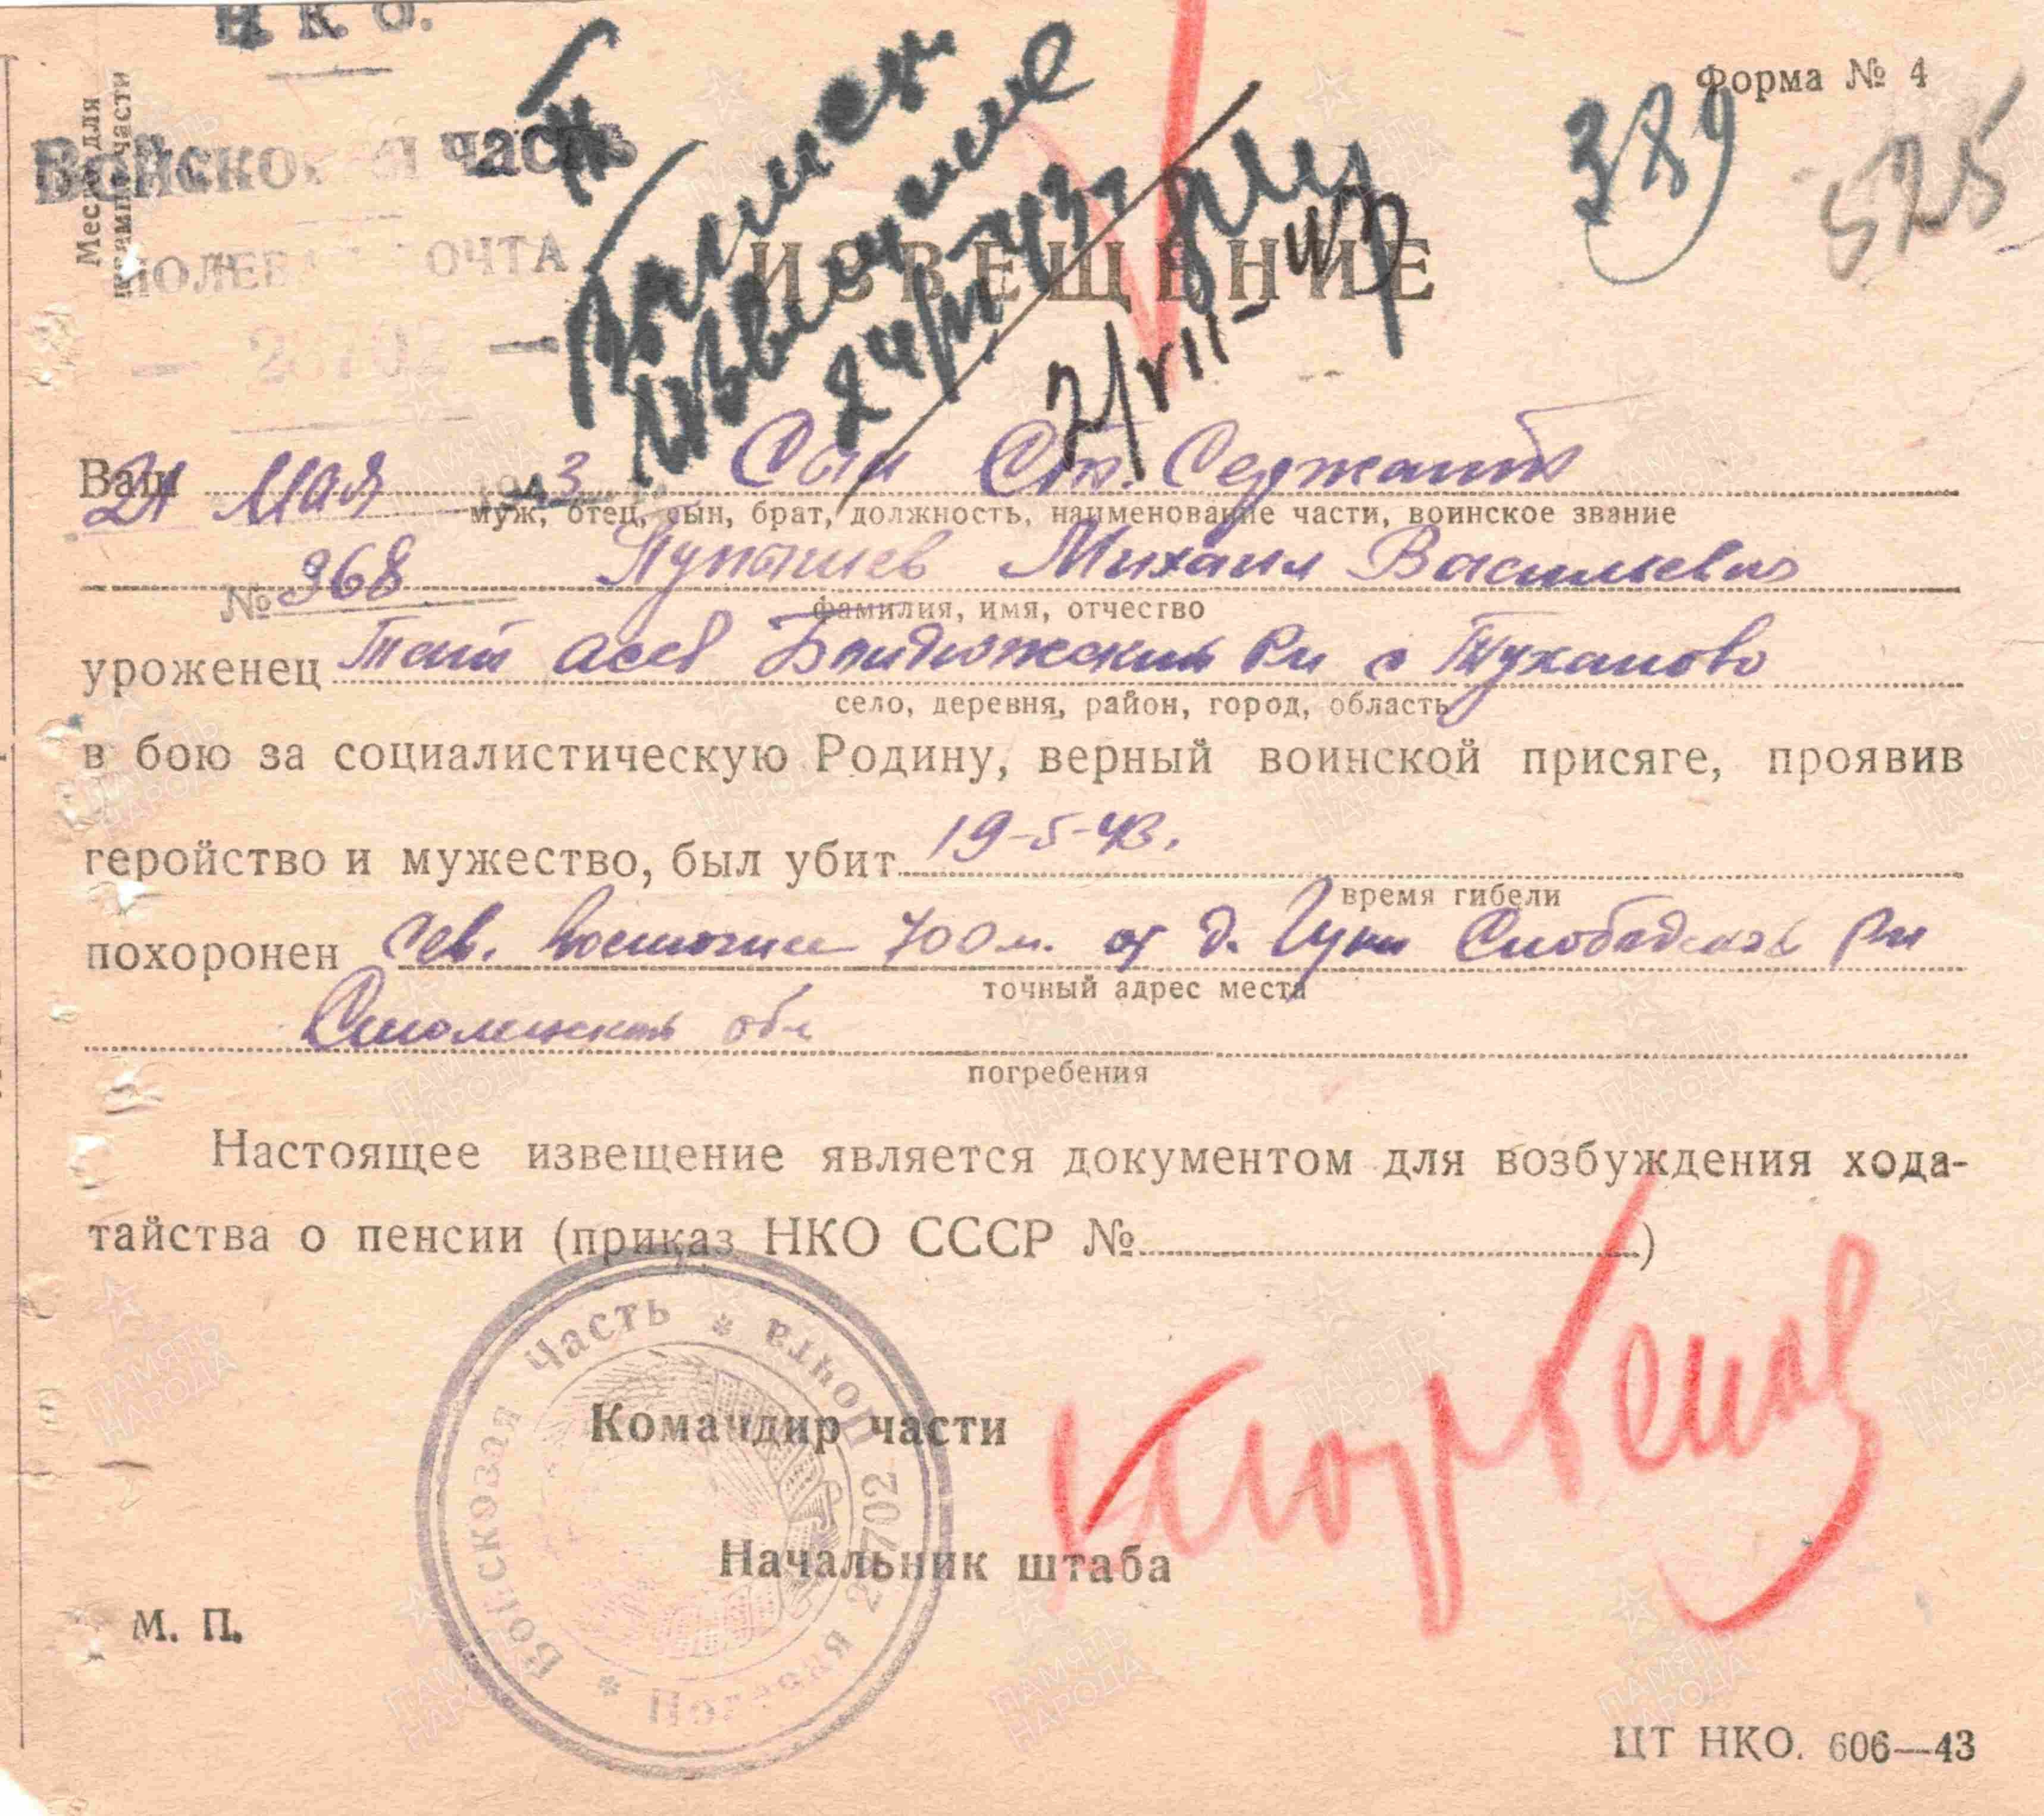 Н К О.
Форма № 4
Место для
штампа части
389
525
Войсковая часть
ПОЛЕВАЯ ПОЧТА
— 28702 —
Выписан
извещение
24/VI-43г
ИЗВЕЩЕНИЕ
7/VII-43
21 Мая 1943
Ваш Сын Ст. Сержант
муж, отец, сын, брат, должность, наименование части, воинское звание
№ 968 Михаил Васильевич
фамилия, имя, отчество
уроженец Тат асср Бондюжский Рн с Туханово
село, деревня, район, город, область
в бою за социалистическую Родину, верный воинской присяге, проявив
геройство и мужество, был убит 19-5-43.
время гибели
похоронен Сев. восточнее 700 м. от д. Слободской Рн
точный адрес места
Смоленской обл
погребения
Настоящее извещение является документом для возбуждения хода-
тайства о пенсии (приказ НКО СССР №)
Войсковая Часть * Полевая Почта 28702 *
Командир части
Начальник штаба
М. П.
ЦТ НКО. 606—43
ПАМЯТЬ НАРОДА